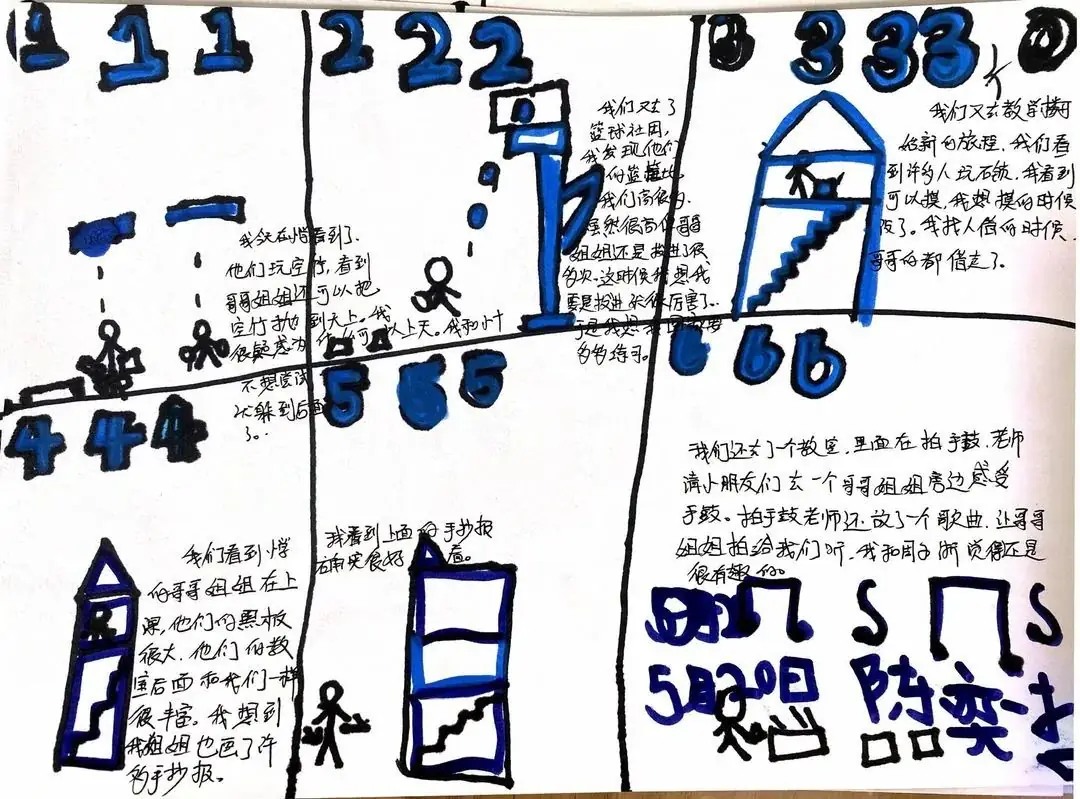 1 1 1
我今天在小学看到了
他们玩空竹,看到
哥哥姐姐还可以把
空竹抛到天上。我
很疑惑为什么可以上天。我和小叶
不想尝试
就躲到后面
了。
2 2 2
我们又去了
篮球社团,
我发现他们
的篮筐比
我们高很多,
虽然很高但哥哥
姐姐还是投进了很
多次。这时候我想我
要是投进就很厉害了。
于是我想我回家要
多多练习。
3 3 3 3
我们又去教学楼开
始新的旅程,我们看
到许多人玩石锁,我看到
可以摸,我想摸的时候
没了。我找人借的时候
哥哥的都借走了。
4 4 4
我们看到小学
的哥哥姐姐在上
课,他们的黑板
很大,他们的教
室后面和我们一样
很丰富。我想到
我姐姐也画了许
多手抄报。
5 5 5
我看到上面的手抄报
确实很好看
6 6 6
我们还去了一个教室,里面在拍手鼓,老师
请小朋友们去一个哥哥姐姐旁边感受
手鼓。拍手鼓老师还放了一个歌曲,让哥哥
姐姐拍给我们听,我和周子浙觉得还是
很有趣的。
5月20日 陈奕